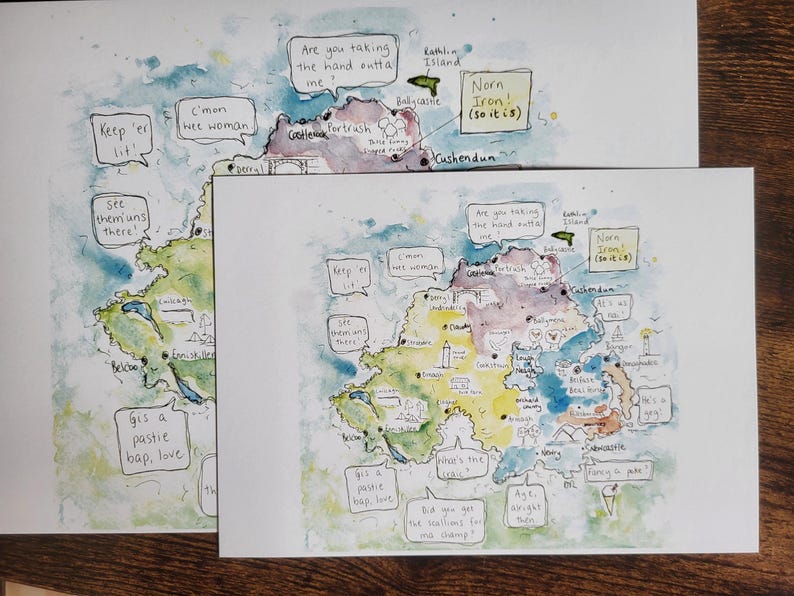 Are you taking
the hand outta
me?
Rathlin
Island
Ballycastle
Norn
Iron!
(so it is)
C'mon
wee woman
Keep 'er
lit!
Castlerock
Portrush
Those funny
shaped rocks
Cushendun
Derry/
See
them'uns
there!
St
Cuilcagh
Belcoo
Enniskillen
Gis a
pastie
bap, love
th
Are you taking
the hand outta
me?
Rathlin
Island
Ballycastle
Norn
Iron!
(so it is)
C'mon
wee woman
Keep 'er
lit!
Castlerock
Portrush
Those funny
shaped rocks
Cushendun
Derry/
Londonderry
At's us
nai!
See
them'uns
there!
Strabane
Claudy
Ballymena
sausages
Bangor
Donaghadee
Round
tower
Cookstown
Lough
Neagh
Omagh
Folk Park
Belfast
Béal Feirste
Cuilcagh
Clogher
Orchard
county
Armagh
He's a
geg!
Belcoo
Enniskillen
What's the
craic?
Newry
Newcastle
Gis a
pastie
bap, love
Fancy a poke?
Did you get
the scallions for
ma champ?
Aye,
alright
then